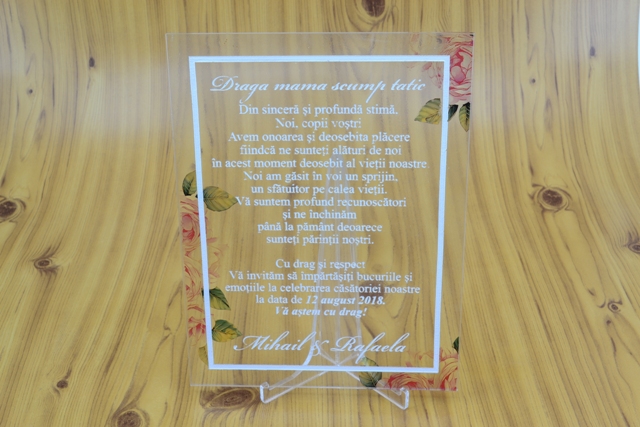 Draga mama scump tatic
Din sinceră și profundă stimă,
Noi, copii voștri
Avem onoarea și deosebita plăcere
fiindcă ne sunteți alături de noi
în acest moment deosebit al vieții noastre.
Noi am găsit în voi un sprijin,
un sfătuitor pe calea vieții.
Vă suntem profund recunoscători
și ne închinăm
până la pământ deoarece
sunteți părinții noștri.
Cu drag și respect
Vă invităm să împărtășiți bucuriile și
emoțiile la celebrarea căsătoriei noastre
la data de 12 august 2018.
Vă aștem cu drag!
Mihail & Rafaela